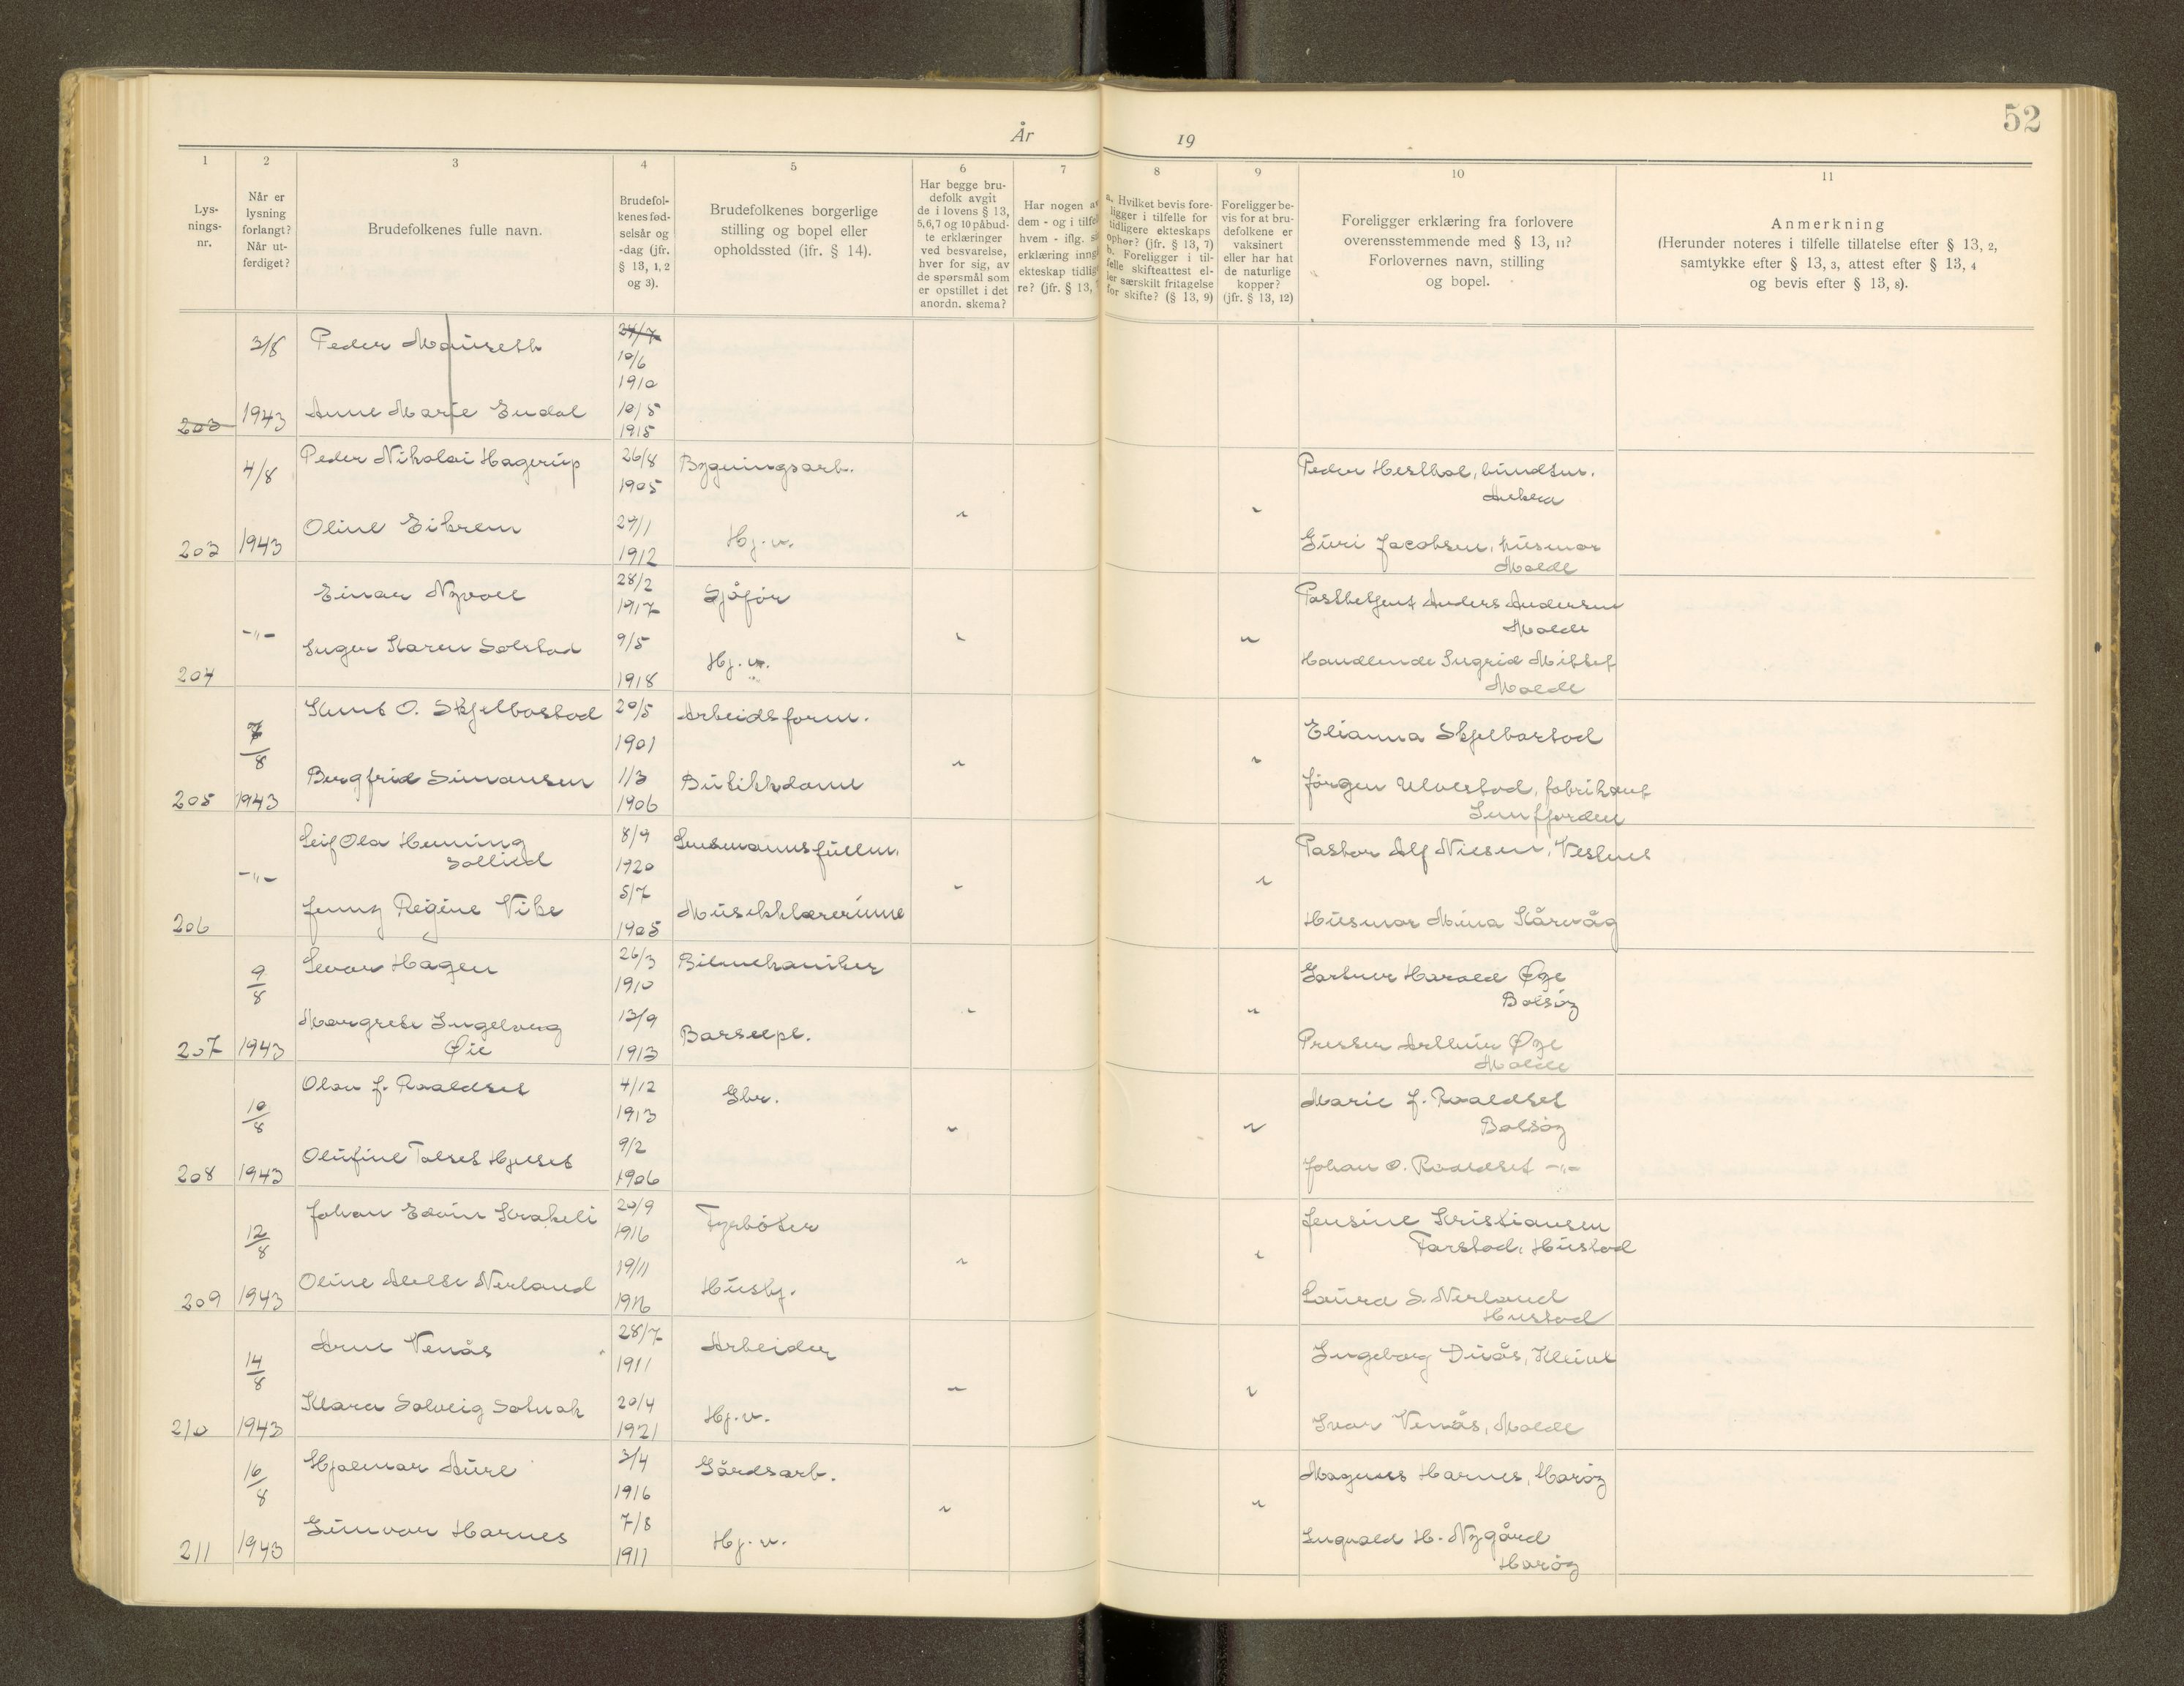 52
År 19
1
2
3
4
5
6
7
8
9
10
11
Lys-
nings-
nr.
Når er
lysning
forlangt?
Når ut-
ferdiget?
Brudefolkenes fulle navn.
Brudefol-
kenes fød-
selsår og
-dag (jfr.
§ 13, 1, 2
og 3).
Brudefolkenes borgerlige
stilling og bopel eller
opholdssted (jfr. § 14).
Har begge bru-
defolk avgit
de i lovens § 13,
5,6,7 og 10 påbud-
te erklæringer
ved besvarelse,
hver for sig, av
de spørsmål som
er opstillet i det
anordn. skema?
Har nogen a
dem - og i tilfe
hvem - iflg. s
erklæring inng
ekteskap tidlig
re? (jfr. § 13,
a. Hvilket bevis fore-
ligger i tilfelle for
tidligere ekteskaps
ophør? (jfr. § 13, 7)
b. Foreligger i til-
felle skifteattest el-
ler særskilt fritagelse
for skifte? (§ 13, 9)
Foreligger be-
vis for at bru-
defolkene er
vaksinert
eller har hat
de naturlige
kopper?
(jfr. § 13, 12)
Foreligger erklæring fra forlovere
overensstemmende med § 13, 11?
Forlovernes navn, stilling
og bopel.
Anmerkning
(Herunder noteres i tilfelle tillatelse efter § 13, 2,
samtykke efter § 13, 3, attest efter § 13, 4
og bevis efter § 13, 8).
3/8 Peder Mauseth 24/7
10/6
1910
203 1943 Anne Marie Endal 10/5
1915
4/8 Peder Nikolai Hagerup 26/8 Bygningsarb. Peder Hesthol,
1905
Oline Eikrem 27/1 Hj.v. Guri Jacobsen, husmor
203 1943 1912 Molde
Einar Nyvoll 28/2 Sjåfør Anders Andersen
1917 Molde
-"- Inger Karen Solstad 9/5 Hj.v. Handlende Ingrid Mittet
204 1918 Molde
7/8 Knut O. Skjelbostad 20/5 Arbeidsform. Elianna Skjelbostad
1901
Bergfrid Simonsen 1/3 Butikkdame Jørgen Ulvestad, fabrikant
205 1943 1906
Leif Ola Henning 8/9 Lensmannsfullm. Pastor Alf Niesen, Vestnes
Sollied 1920
-"- Jenny Regine Vike 5/7 Musikklærerinne Husmor Mina Kårvåg
206 1905
9/8 Ivar Hagen 26/3 Bilmekaniker Gartner Harald Øye
1910 Bolsøy
Margrete Ingeborg 13/9 Barselpl. Presser Arthur Øye
207 1943 Øie 1913 Molde
10/8 Olav J. Roaldset 4/12 Gbr. Marie J. Roaldset
1913 Bolsøy
Olufine Tolset Hjelset 9/2 Johan O. Roaldset -"-
208 1943 1906
12/8 Johan Edvin Krakeli 20/9 Fyrbøter Jensine Kristiansen
1916 Farstad, Hustad
Oline Nerland 19/11 Hushj. Laura S. Nerland
209 1943 1916 Hustad
14/8 Arne Venås 28/7 Arbeider Ingeborg Duås, Kleive
1911
Klara Solveig Solvak 20/4 Hj.v. Ivar Venås, Molde
210 1943 1921
16/8 Hjalmar Aure 3/4 Gårdsarb. Magnus Harnes, Harøy
1916
Gunvor Harnes 7/8 Hj.v. Ingvald H. Nygård
211 1943 1911 Harøy